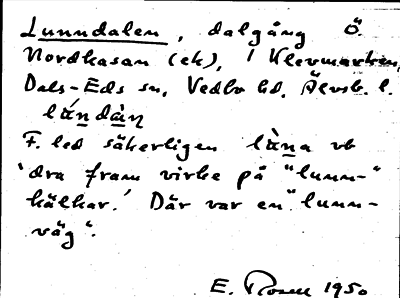 Lunndalen, dalgång Ö.
Nordkasan (ek), i Klevmarken,
Dals-Eds sn, Vedbo hd. Älvsb. l.
lándàn
F. led säkerligen làna vb
'dra fram virke på "lunn-"
kälkar.' Där var en "lunn-
väg".
E. Rosell 1950